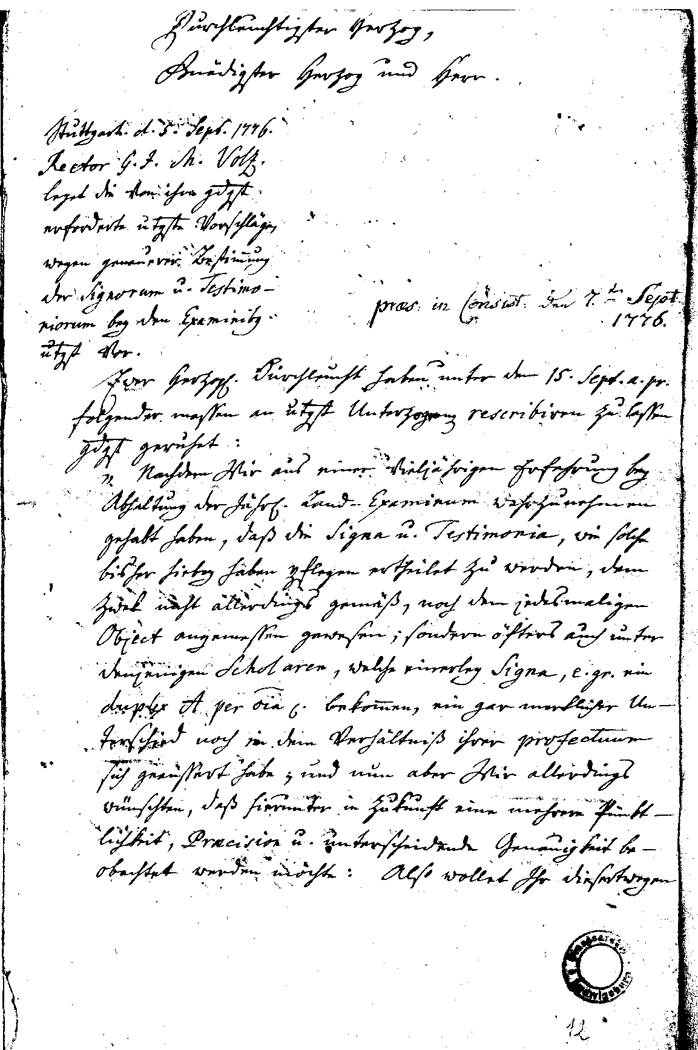 Durchleuchtigster Herzog,
Gnädigster Herzog und Herr.
Stuttgart. d. 5. Sept. 1776.
Rector G. F. M. Volz.
legt die von ihm gdgst.
erforderte utgste Vorschläge
wegen genauerer Bestimung
der Signorum u. Testimo-
niorum bey den Examinibg.
utgst vor.
præs. in Consist. den 7. Sept
1776.
Ewer Herzogl. Durchleucht haben unter dem 15. Sept. a. pr.
folgender massen an utgst Unterzognen rescribiren zu lassen
gdgst geruhet:
„Nachdem Wir aus einer vieljährigen Erfahrung bey
Abhaltung der Jährl. Land-Examinum wahrzunehmen
gehabt haben, daß die Signa u. Testimonia, wie solche
bisher hierbey haben pflegen ertheilet zu werden, dem
Zwek nicht allerdings gemäß, noch dem jedesmaligen
Object angemessen gewesen; sondern öfters auch unter
denjenigen Scholaren, welche einerley Signa, e. gr. ein
duplex A per oia c. bekomen, ein gar merklicher Un-
terschied noch in dem Verhältniß ihrer profectuum
sich geäussert habe; und nun aber Wir allerdings
wünschten, daß hierunter in Zukunft eine mehrere Pünkt-
lichkeit, Præcision u. unterscheidende Genauigkeit be-
obachtet werden möchte: Also wollet Ihr diesertwegen
Ludwigsburg
12